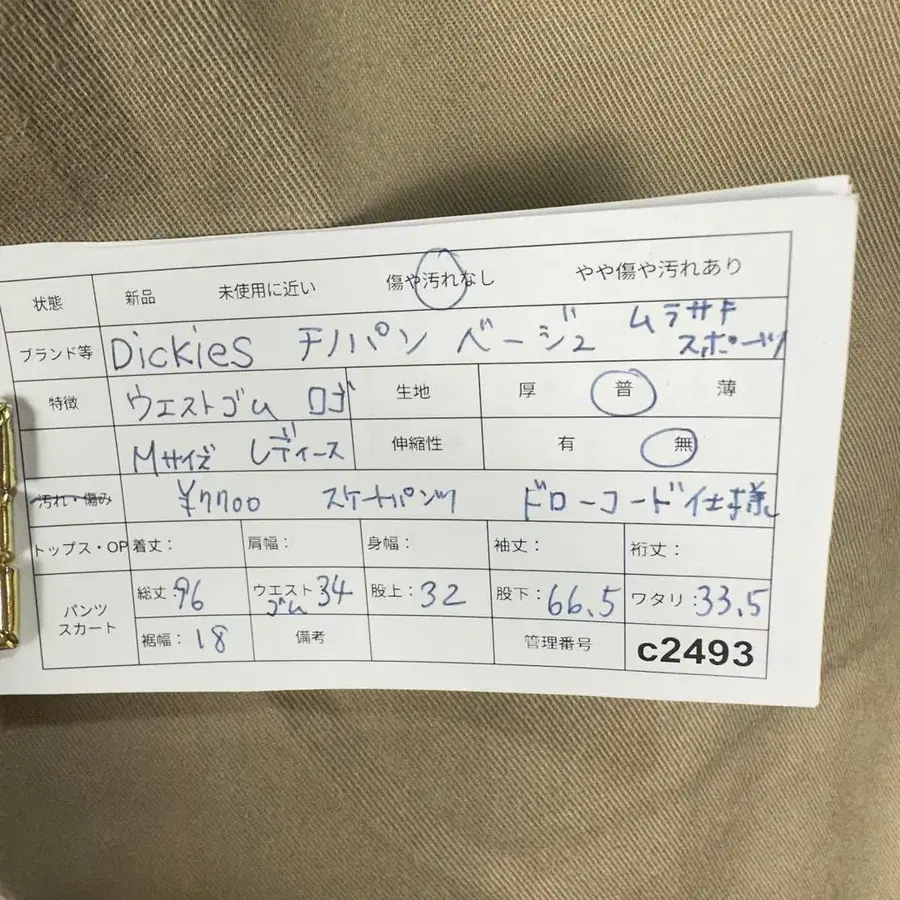 状態 新品 未使用に近い 傷や汚れなし やや傷や汚れあり
ブランド等 Dickies チノパン ベージュ ムラサキスポーツ
特徴 ウエストゴム ロゴ 生地 厚 普 薄
Mサイズ レディース 伸縮性 有 無
汚れ・傷み ¥7700 スケートパンツ ドローコード仕様
トップス・OP 着丈: 肩幅: 身幅: 袖丈: 裄丈:
パンツ スカート 総丈:96 ウエスト ゴム 34 股上:32 股下:66.5 ワタリ:33.5
裾幅:18 備考 管理番号 c2493